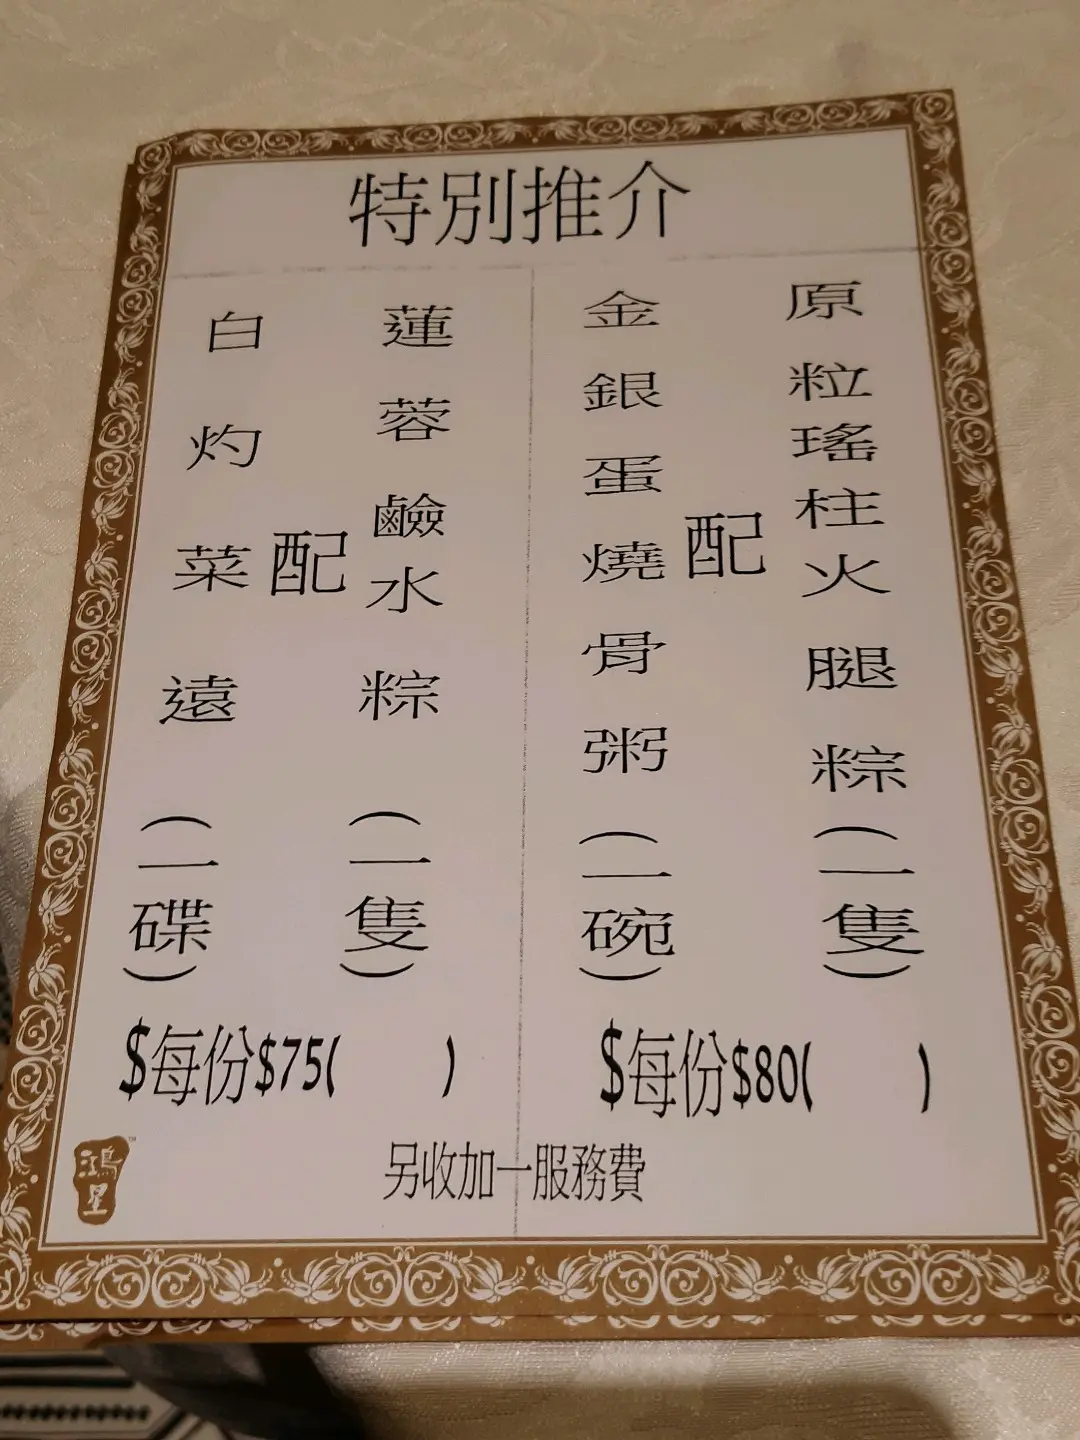 特別推介
原粒瑤柱火腿粽(一隻)
配
金銀蛋燒骨粥(一碗)
$每份$80( )
蓮蓉鹼水粽(一隻)
配
白灼菜遠(一碟)
$每份$75( )
另收加一服務費
鴻星
TM